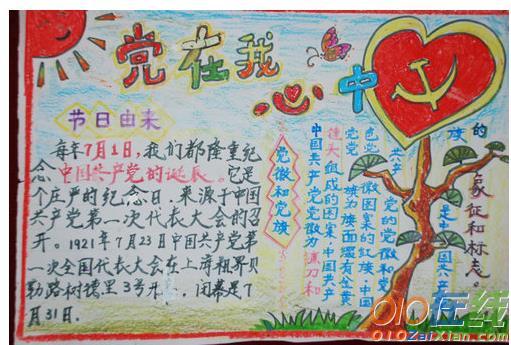 党在我心中
节日由来
每年7月1日,我们都隆重纪
念中国共产党的诞辰。它是
个庄严的纪念日,来源于中国
共产党第一次代表大会的召
开。1921年7月23日中国共产党第
一次全国代表大会在上海租界贝
勒路树德里3号开幕,闭幕是7
月31日.
党徽和党旗
中国共产党党徽为镰刀和
组成的图案,中国共产
党党旗为旗面缀有金黄
色党徽图案的红旗.中国
共产党的党徽和党
旗
是中国共产
的象征和标志。
010在线
010ZaiXian.com